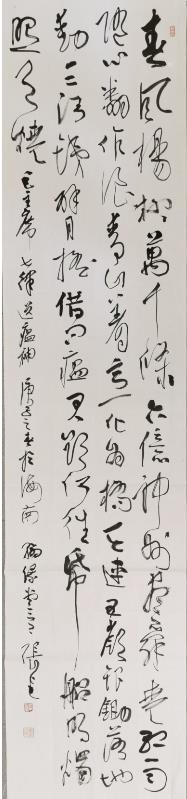 春風楊柳萬千條六億神州盡舜堯紅雨
隨心翻作浪青山着意化為橋天連五嶺銀鋤落地
動三河鐵臂搖借問瘟君欲何往紙船明燭
照天燒 毛主席七律送瘟神 之春於海南 張